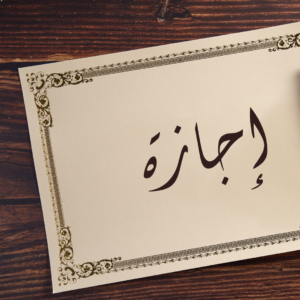 إجازة